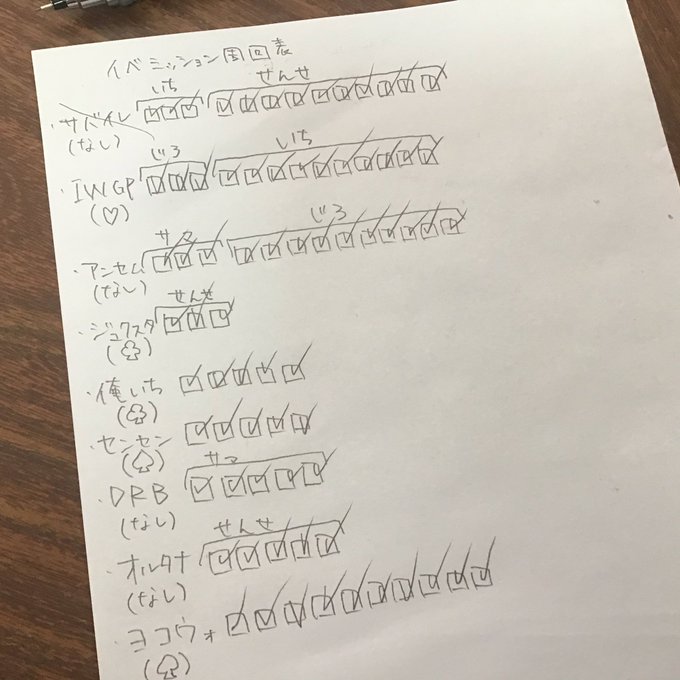 イベミッション周回表
いち せんせ
・サバイレ ☑☑☑ ☑☑☑☑☑☑☑☑☑☑
(なし)
じろ いち
・IWGP ☑☑☑ ☑☑☑☑☑☑☑☑☑☑
(♡)
サマ じろ
・アンセム ☑☑☑ ☑☑☑☑☑☑☑☑☑☑
(なし)
せんせ
・ジュクスタ ☑☑☑
(♧)
・俺いち ☑☑☑☑☑
(♧)
・センセン ☑☑☑☑☑
(♤)
サマ
・DRB ☑☑☑☑☑
(なし)
せんせ
・オルタナ ☑☑☑☑☑
(なし)
・ヨコウォ ☑☑☑☑☑☑☑☑☑☑
(♤)